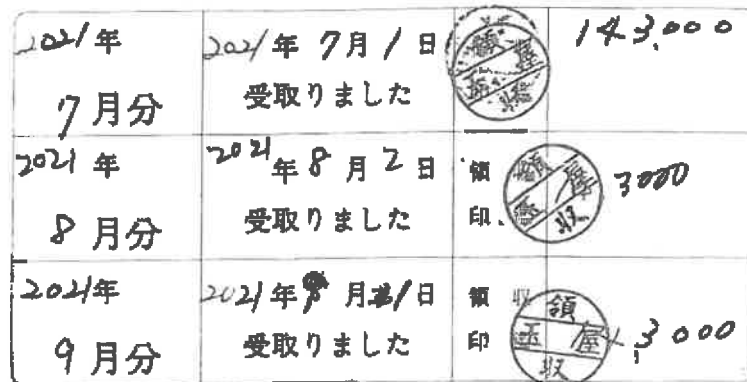 2021年
7月分
2021年7月1日
受取りました
143,000
2021年
8月分
2021年8月2日
受取りました
領
印
3000
2021年
9月分
2021年 月 1日
受取りました
領収
印
領
屋
収
3000